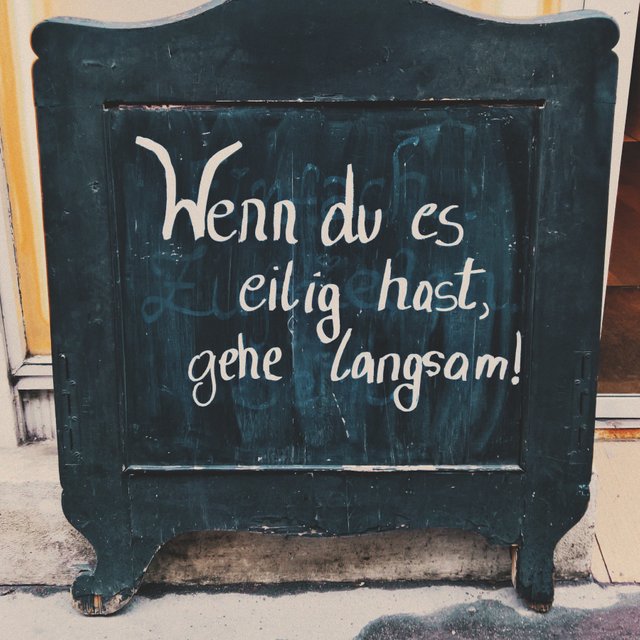 Wenn du es
eilig hast,
gehe langsam!